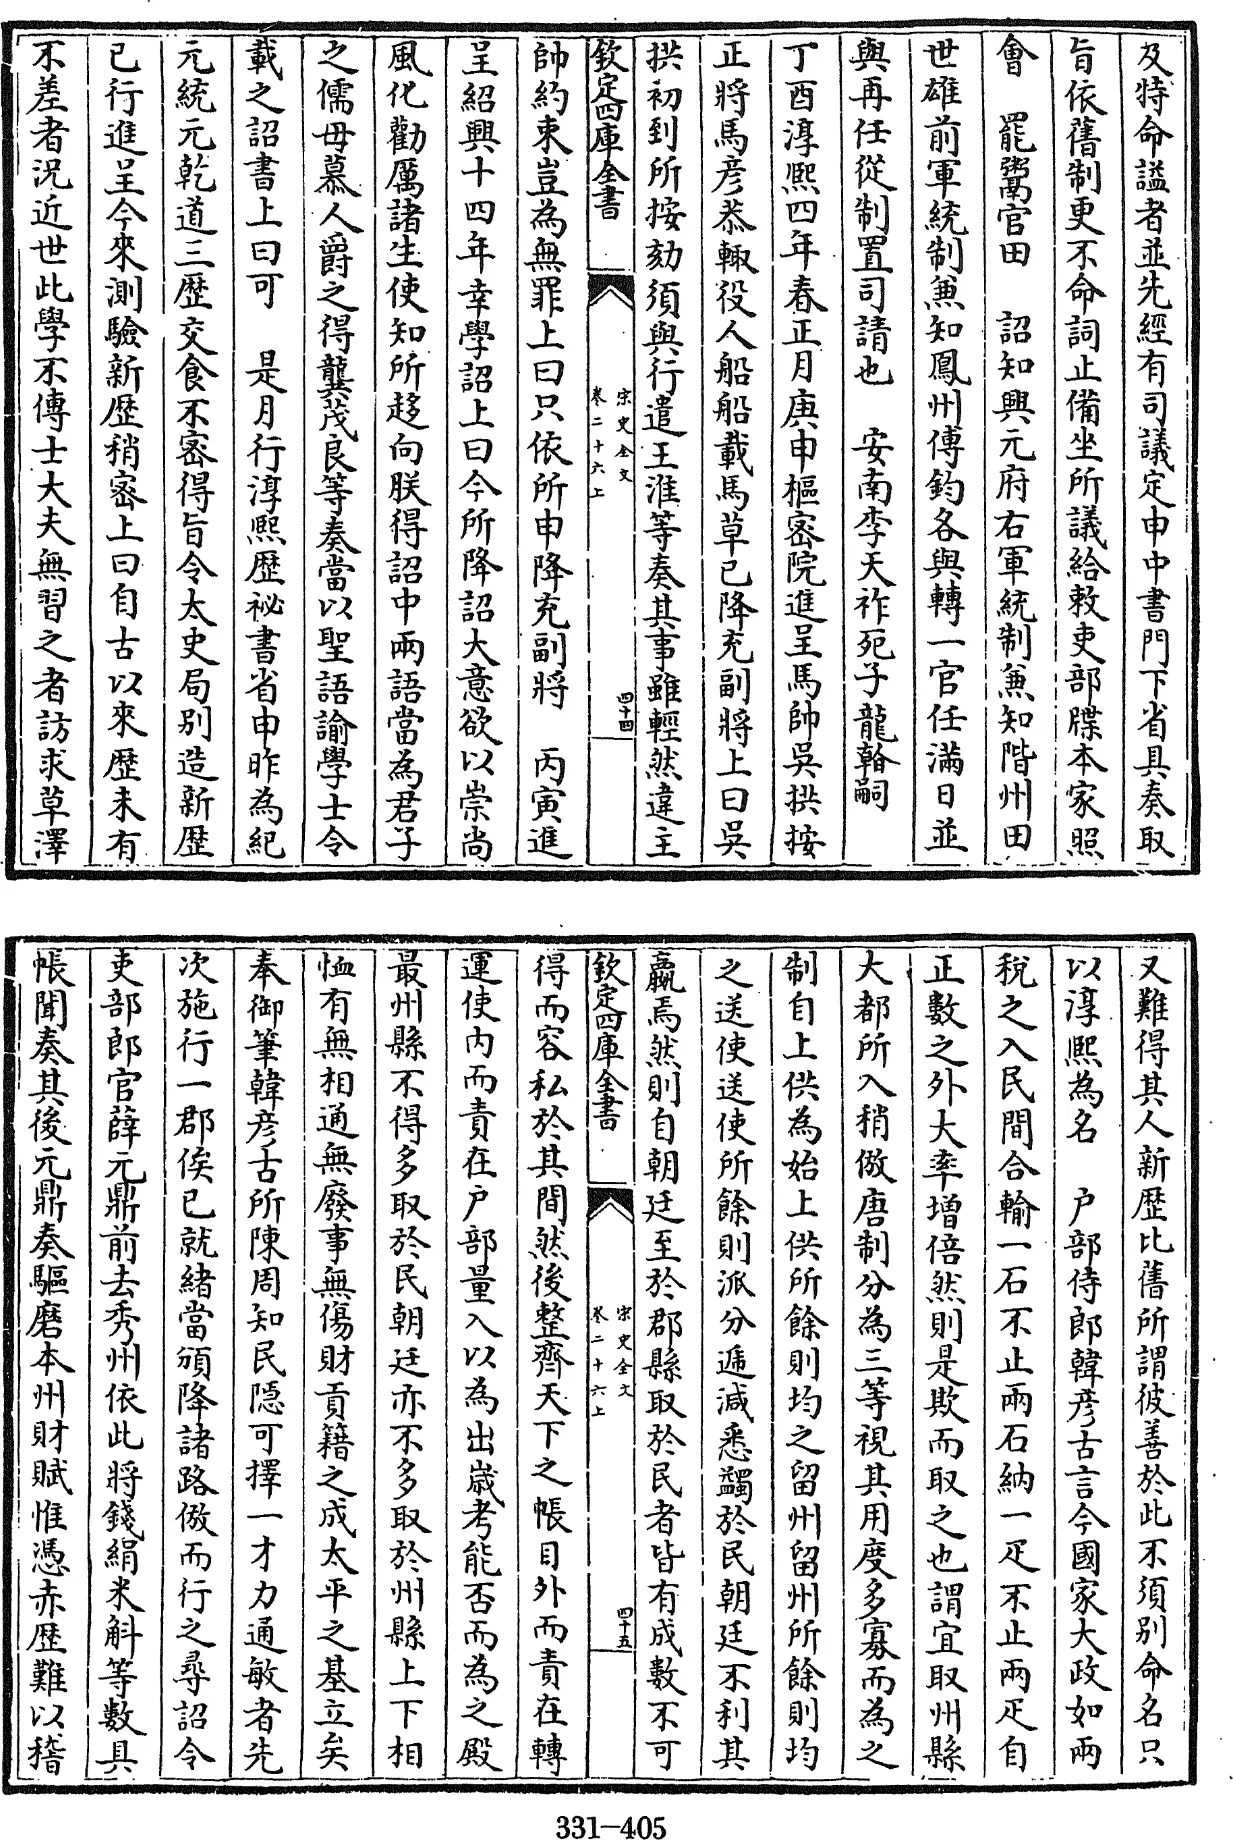 及特命諡者並先經有司議定申中書門下省具奏取
旨依舊制更不命詞止備坐所議給敕吏部牒本家照
會　罷鬻官田　詔知興元府右軍統制兼知階州田
世雄前軍統制兼知鳳州傅鈞各與轉一官任滿日並
與再任從制置司請也　安南李天祚死子龍翰嗣
丁酉淳熙四年春正月庚申樞密院進呈馬帥吳拱按
正將馬彥恭輙役人船船載馬草已降充副將上曰吳
拱初到所按劾須與行遣王淮等奏其事雖輕然違主
欽定四庫全書
宋史全文
卷二十六上
四十四
帥約束豈為無罪上曰只依所申降充副將　丙寅進
呈紹興十四年幸學詔上曰今所降詔大意欲以崇尚
風化勸厲諸生使知所趍向朕得詔中兩語當為君子
之儒毋慕人爵之得龔茂良等奏當以聖語諭學士令
載之詔書上曰可　是月行淳熙歴祕書省申昨為紀
元統元乾道三歴交食不密得旨令太史局别造新歴
已行進呈今來測驗新歴稍密上曰自古以來歴未有
不差者況近世此學不傳士大夫無習之者訪求草澤
又難得其人新歴比舊所謂彼善於此不須别命名只
以淳熙為名　户部侍郎韓彥古言今國家大政如兩
稅之入民間合輸一石不止兩石納一疋不止兩疋自
正數之外大率增倍然則是欺而取之也謂宜取州縣
大都所入稍倣唐制分為三等視其用度多寡而為之
制自上供為始上供所餘則均之留州留州所餘則均
之送使送使所餘則派分遞減悉蠲於民朝廷不利其
贏焉然則自朝廷至於郡縣取於民者皆有成數不可
欽定四庫全書
宋史全文
卷二十六上
四十五
得而容私於其間然後整齊天下之帳目外而責在轉
運使内而責在户部量入以為出歲考能否而為之殿
最州縣不得多取於民朝廷亦不多取於州縣上下相
恤有無相通無廢事無傷財貢籍之成太平之基立矣
奉御筆韓彥古所陳周知民隱可擇一才力通敏者先
次施行一郡俟已就緒當頒降諸路倣而行之尋詔令
吏部郎官薛元鼎前去秀州依此將錢絹米斛等數具
帳聞奏其後元鼎奏驅磨本州財賦惟憑赤歴難以稽
331-405